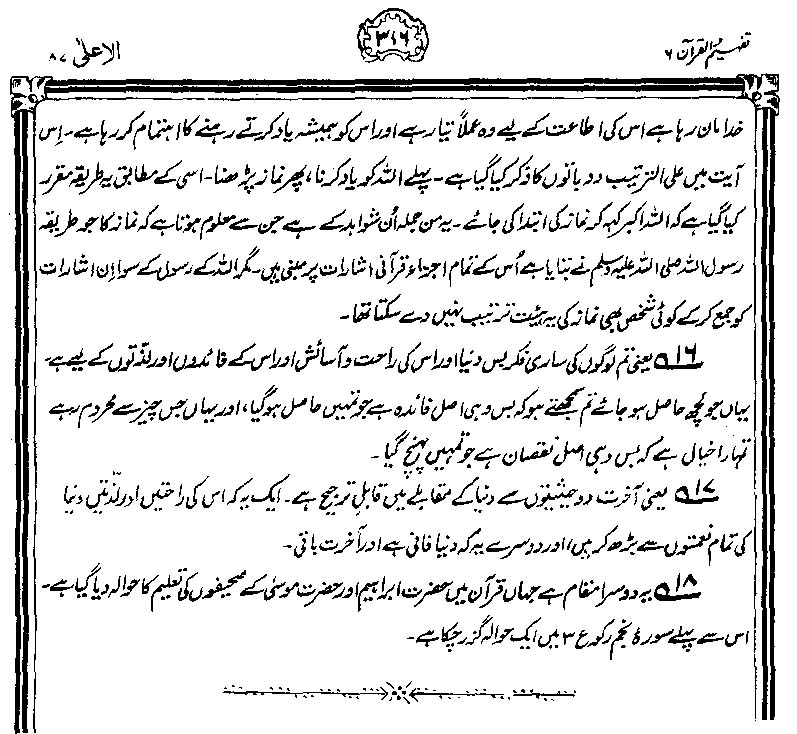 تفہیم القرآن ۶
۳۱۶
الاعلیٰ ۸۷
خدا مان رہا ہے اس کی اطاعت کے لیے وہ عملاً تیار ہے اور اس کو ہمیشہ یاد کرتے رہنے کا اہتمام کر رہا ہے۔ اِس
آیت میں علی الترتیب دو باتوں کا ذکر کیا گیا ہے۔ پہلے اللہ کو یاد کرنا، پھر نماز پڑھنا۔ اسی کے مطابق یہ طریقہ مقرر
کیا گیا ہے کہ اللہ اکبر کہہ کر نماز کی ابتدا کی جائے۔ یہ من جملہ اُن شواہد کے ہے جن سے معلوم ہوتا ہے کہ نماز کا جو طریقہ
رسول اللہ صلی اللہ علیہ وسلم نے بتایا ہے اُس کے تمام اجزاء قرآنی اشارات پر مبنی ہیں۔ مگر اللہ کے رسول کے سوا اِن اشارات
کو جمع کر کے کوئی شخص بھی نماز کی یہ ہیئت ترتیب نہیں دے سکتا تھا۔
۱۶؎ یعنی تم لوگوں کی ساری فکر بس دنیا اور اس کی راحت و آسائش اور اس کے فائدوں اور لذّتوں کے لیے ہے۔
یہاں جو کچھ حاصل ہو جائے تم سمجھتے ہو کہ بس وہی اصل فائدہ ہے جو تمہیں حاصل ہوگیا، اور یہاں جس چیز سے محروم رہے
تمہارا خیال ہے کہ بس وہی اصل نقصان ہے جو تمہیں پہنچ گیا۔
۱۷؎ یعنی آخرت دو حیثیتوں سے دنیا کے مقابلے میں قابلِ ترجیح ہے۔ ایک یہ کہ اس کی راحتیں اور لذّتیں دنیا
کی تمام نعمتوں سے بڑھ کر ہیں، اور دوسرے یہ کہ دنیا فانی ہے اور آخرت باقی۔
۱۸؎ یہ دوسرا مقام ہے جہاں قرآن میں حضرت ابراہیم اور حضرت موسیٰ کے صحیفوں کی تعلیم کا حوالہ دیا گیا ہے۔
اس سے پہلے سورۂ نجم رکوع ۳ میں ایک حوالہ گزر چکا ہے۔